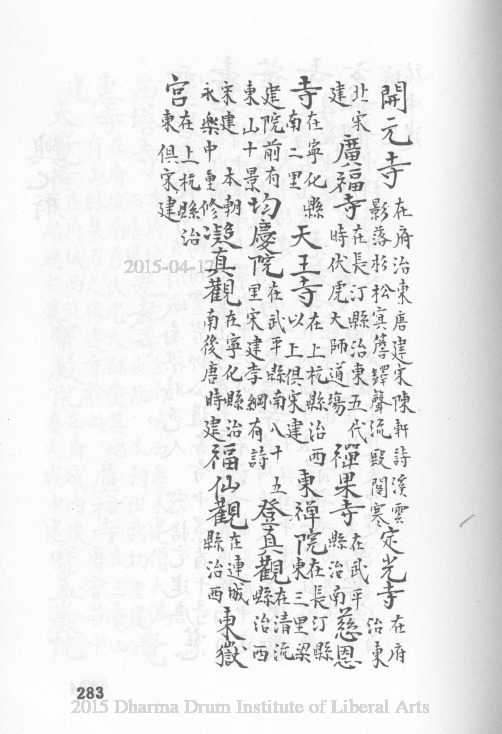 開元寺 在府治東唐建宋陳軒詩溪雲影落杉松寘簷鐸聲流殿閣寒 定光寺 在府治東
北宋建 廣福寺 在長汀縣治東五代時伏虎大師道場 禪果寺 在武平縣治南 慈恩
寺 在寧化縣南二里 天王寺 在上杭縣治西以上俱宋建 東禪院 在長汀縣東三里梁
建院前有東山十景 均慶院 在武平縣南八十五里宋建李綱有詩 登真觀 在清流縣治西
宋建本朝永樂中重修 凝真觀 在寧化縣治南後唐時建 福仙觀 在連城縣治西 東嶽
宮 在上杭縣治東俱宋建
2015-04-17
283
2015 Dharma Drum Institute of Liberal Arts